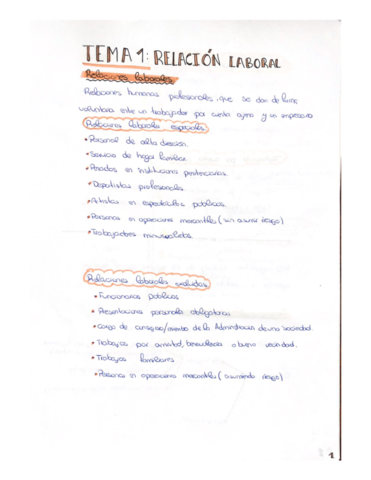 TEMA 1: RELACIÓN LABORAL
Relaciones laborales
Relaciones humanas profesionales que se dan de forma
voluntaria entre un trabajador por cuenta ajena y un empresario
Relaciones laborales especiales
• Personal de alta dirección.
• Servicio de hogar familiar.
• Penados en instituciones penitenciarias.
• Deportistas profesionales.
• Artistas en espectáculos públicos.
• Personas en operaciones mercantiles (sin asumir riesgo)
• Trabajadores minusválidos.
Relaciones laborales excluidas
• Funcionarios públicos
• Prestaciones personales obligatorias
• Cargo de consejero/miembro de la Administración de una sociedad.
• Trabajos por amistad, benevolencia o buena vecindad.
• Trabajos familiares
• Personas en operaciones mercantiles (asumiendo riesgo)
1